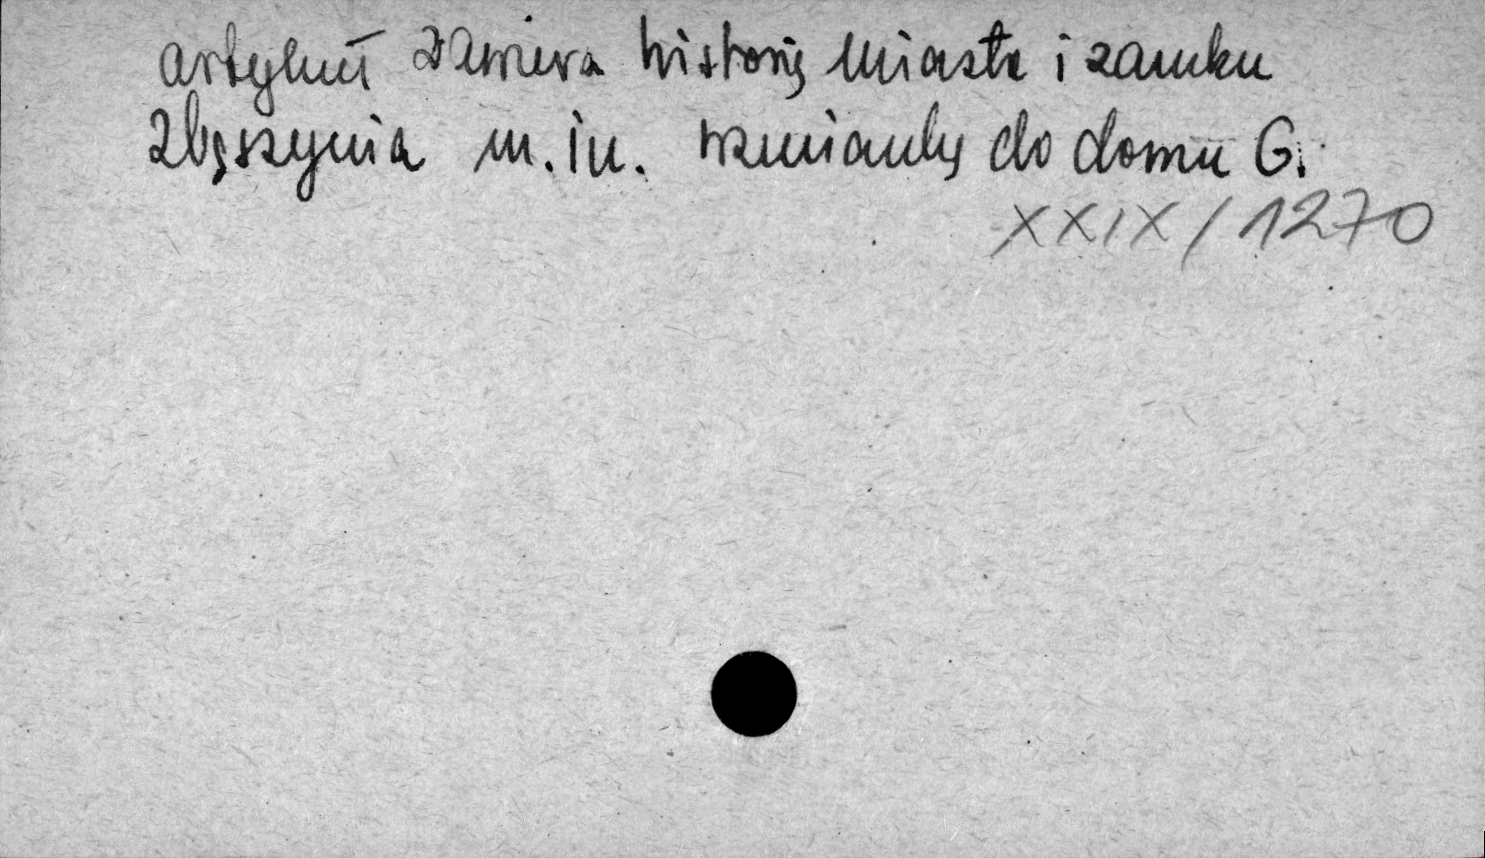 artykuł zawiera historię miasta i zamku
Zbąszynia m. in. wzmianky do domu G.
XXIX/1270